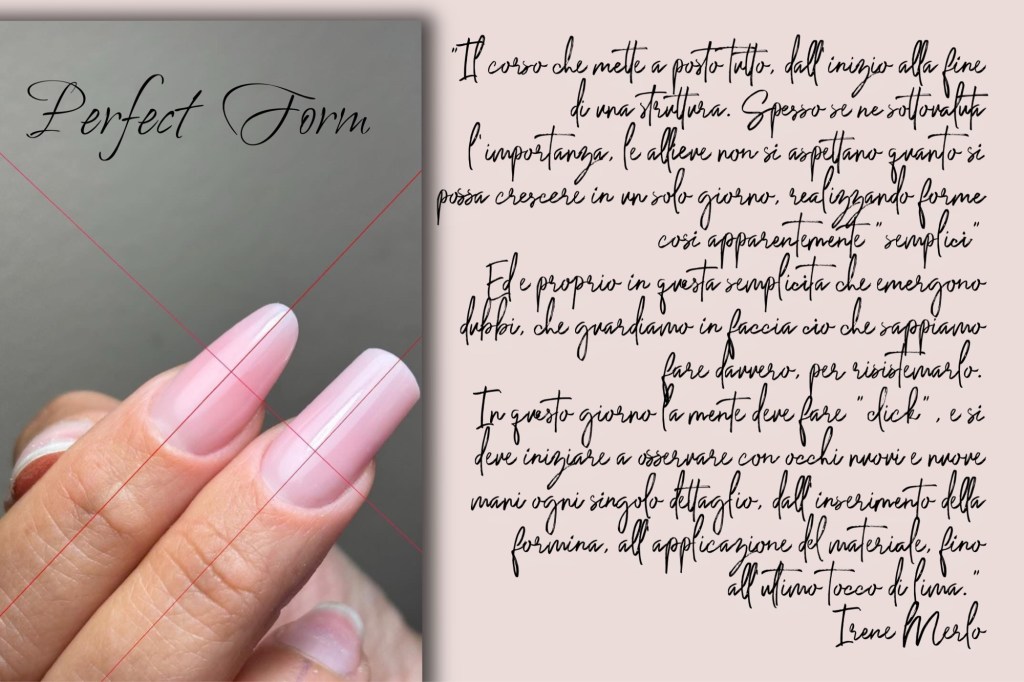 Perfect Form
"Il corso che mette a posto tutto, dall'inizio alla fine
di una struttura. Spesso se ne sottovaluta
l'importanza, le allieve non si aspettano quanto si
possa crescere in un solo giorno, realizzando forme
cosi apparentemente "semplici"
Ed e proprio in questa semplicita che emergono
dubbi, che guardiamo in faccia cio che sappiamo
fare davvero, per risistemarlo.
In questo giorno la mente deve fare "click", e si
deve iniziare a osservare con occhi nuovi e nuove
mani ogni singolo dettaglio, dall'inserimento della
formina, all'applicazione del materiale, fino
all'ultimo tocco di lima."
Irene Merlo